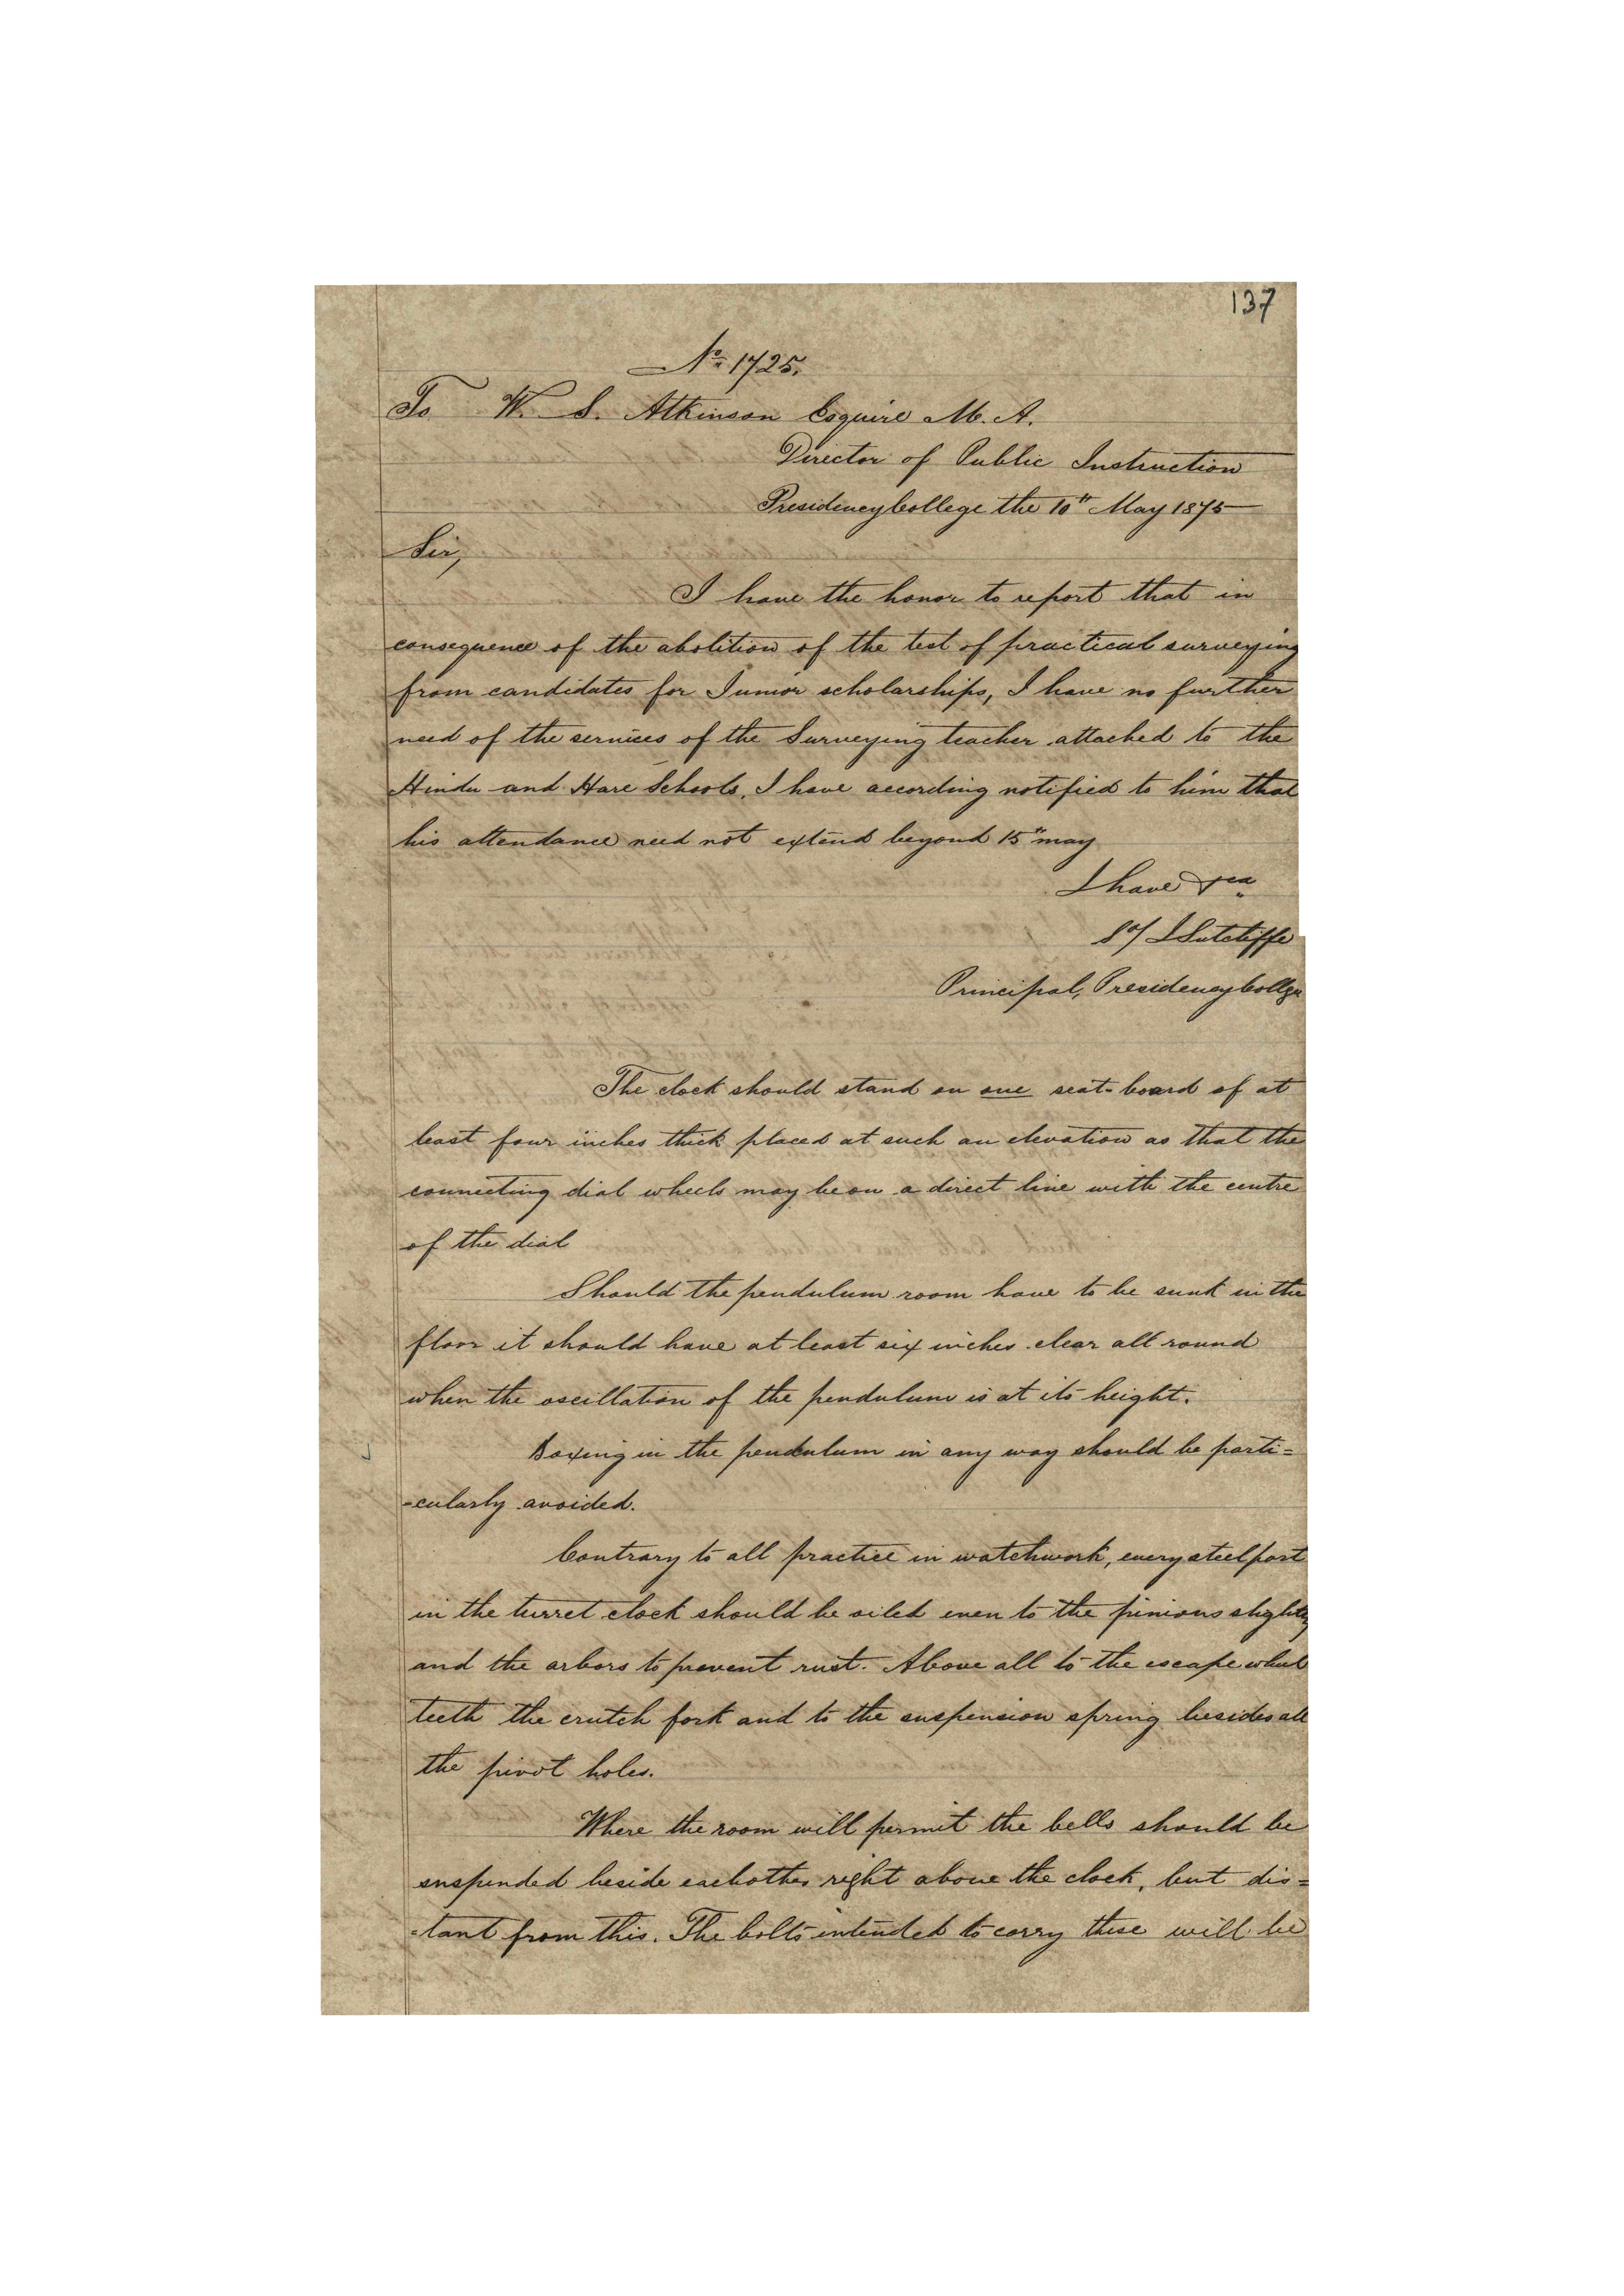 137
No. 1725.
To W. S. Atkinson Esquire M. A.
Director of Public Instruction
Presidency College the 10th May 1875
Sir,
I have the honor to report that in
consequence of the abolition of the test of practical surveying
from candidates for Junior scholarships, I have no further
need of the services of the Surveying teacher attached to the
Hindu and Hare Schools. I have according notified to him that
his attendance need not extend beyond 15th may
I have &ca
Sd/ J Sutcliffe
Principal, Presidency Collge
The clock should stand on one seat-board of at
least four inches thick placed at such an elevation as that the
connecting dial wheels may be on a direct line with the centre
of the dial
Should the pendulum room have to be sunk in the
floor it should have at least six inches clear all round
when the oscillation of the pendulum is at its height.
Boxing in the pendulum in any way should be parti=
=cularly avoided.
Contrary to all practice in watchwork, every steel part
in the turret clock should be oiled even to the pinions slightly
and the arbors to prevent rust. Above all to the escape wheel
teeth the crutch fork and to the suspension spring besides all
the pivot holes.
Where the room will permit the bells should be
suspended beside eachother right above the clock, but dis=
=tant from this. The bolts intended to carry these will be